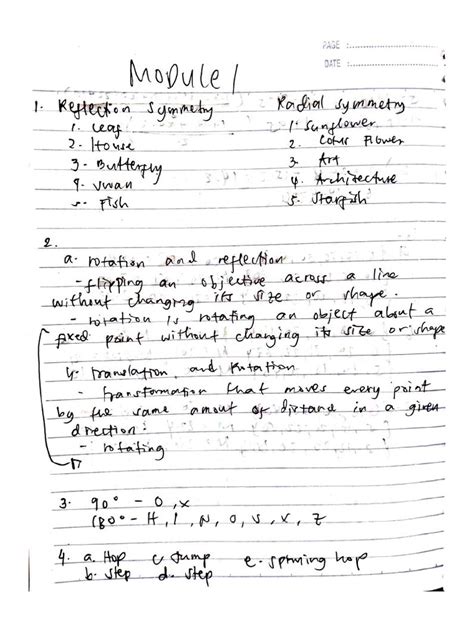 PAGE :
DATE :
MODULE 1
1. Reflection Symmetry Radial symmetry
1. Leaf 1. Sunflower
2. House 2. Lotus Flower
3. Butterfly 3. Art
4. Swan 4. Architecture
5. Fish 5. Starfish
2.
a. rotation and reflection
- flipping an objective across a line
without changing its size or shape.
- rotation is rotating an object about a
fixed point without changing its size or shape
b. Translation and Rotation
- transformation that moves every point
by the same amount of distand in a given
direction.
- rotating
3. 90° - O, X
180° - H, I, N, O, S, X, Z
4. a. Hop c. Jump e. spinning hop
b. step d. step